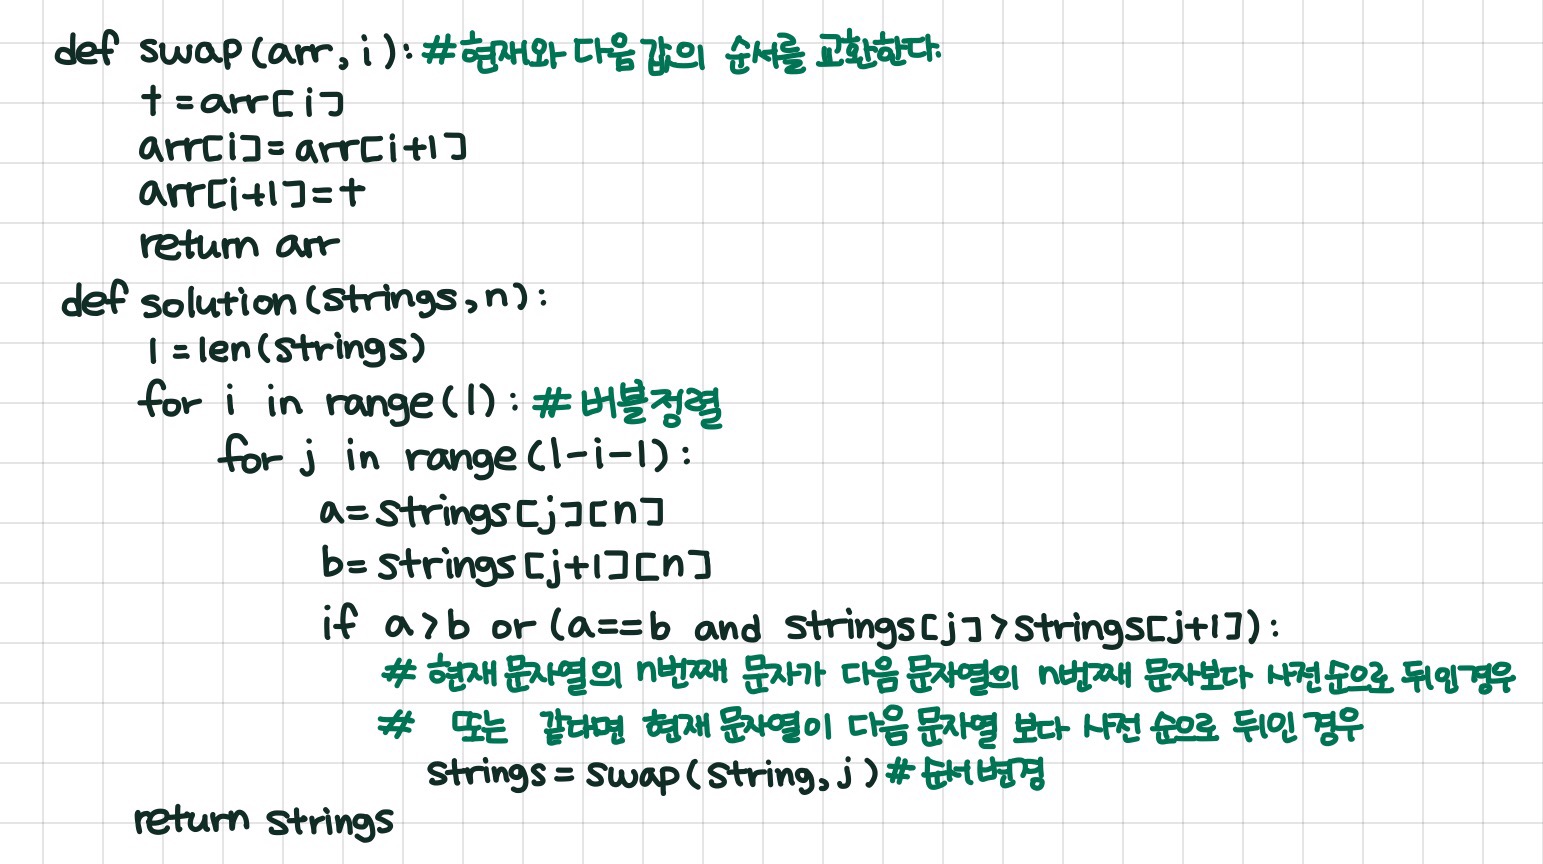 def swap(arr, i): #현재와 다음 값의 순서를 교환한다.
t = arr[i]
arr[i] = arr[i+1]
arr[i+1] = t
return arr
def solution(strings, n):
l = len(strings)
for i in range(l): # 버블정렬
for j in range(l-i-1):
a = strings[j][n]
b = strings[j+1][n]
if a > b or (a==b and strings[j] > strings[j+1]):
# 현재 문자열의 n번째 문자가 다음 문자열의 n번째 문자보다 사전 순으로 뒤인 경우
# 또는 같다면 현재 문자열이 다음 문자열 보다 사전 순으로 뒤인 경우
strings = swap(string, j) # 순서변경
return strings